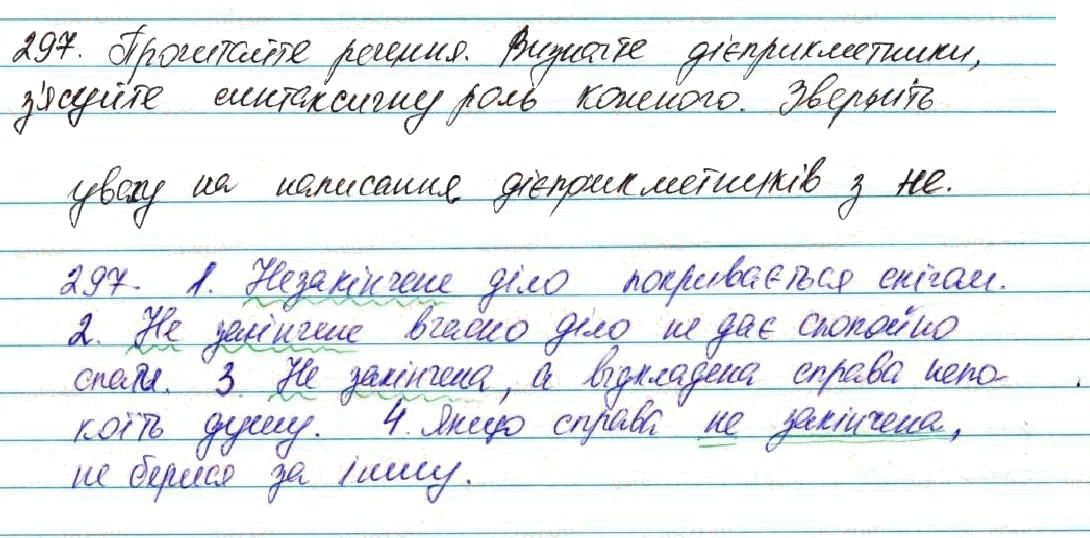 297. Прочитайте речення. Визначте дієприкметники,
з'ясуйте синтаксичну роль кожного. Зверніть
увагу на написання дієприкметників з не.
297. 1. Незакінчене діло покривається снігом.
2. Не закінчене вчасно діло не дає спокойно
спати. 3. Не закінчена, а відкладена справа непо-
коїть душу. 4. Якщо справа не закінчена,
не берися за іншу.